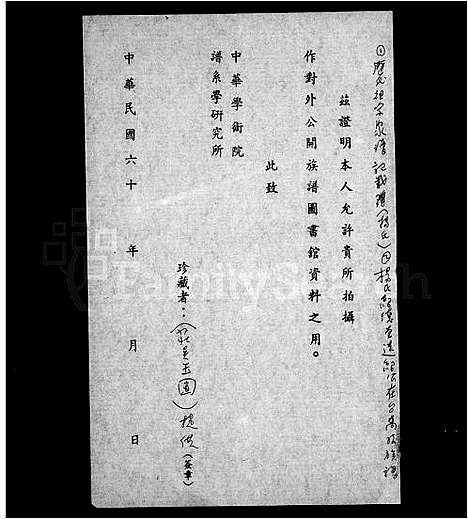 ①歷代祖宗家譜記載譜(楊氏)②楊氏
茲證明本人允許貴所拍攝
作對外公開族譜圖書館資料之用。
此致
中華學術院
譜系學研究所
珍藏者：(簽章)
中華民國六十 年 月 日
FamilySearch